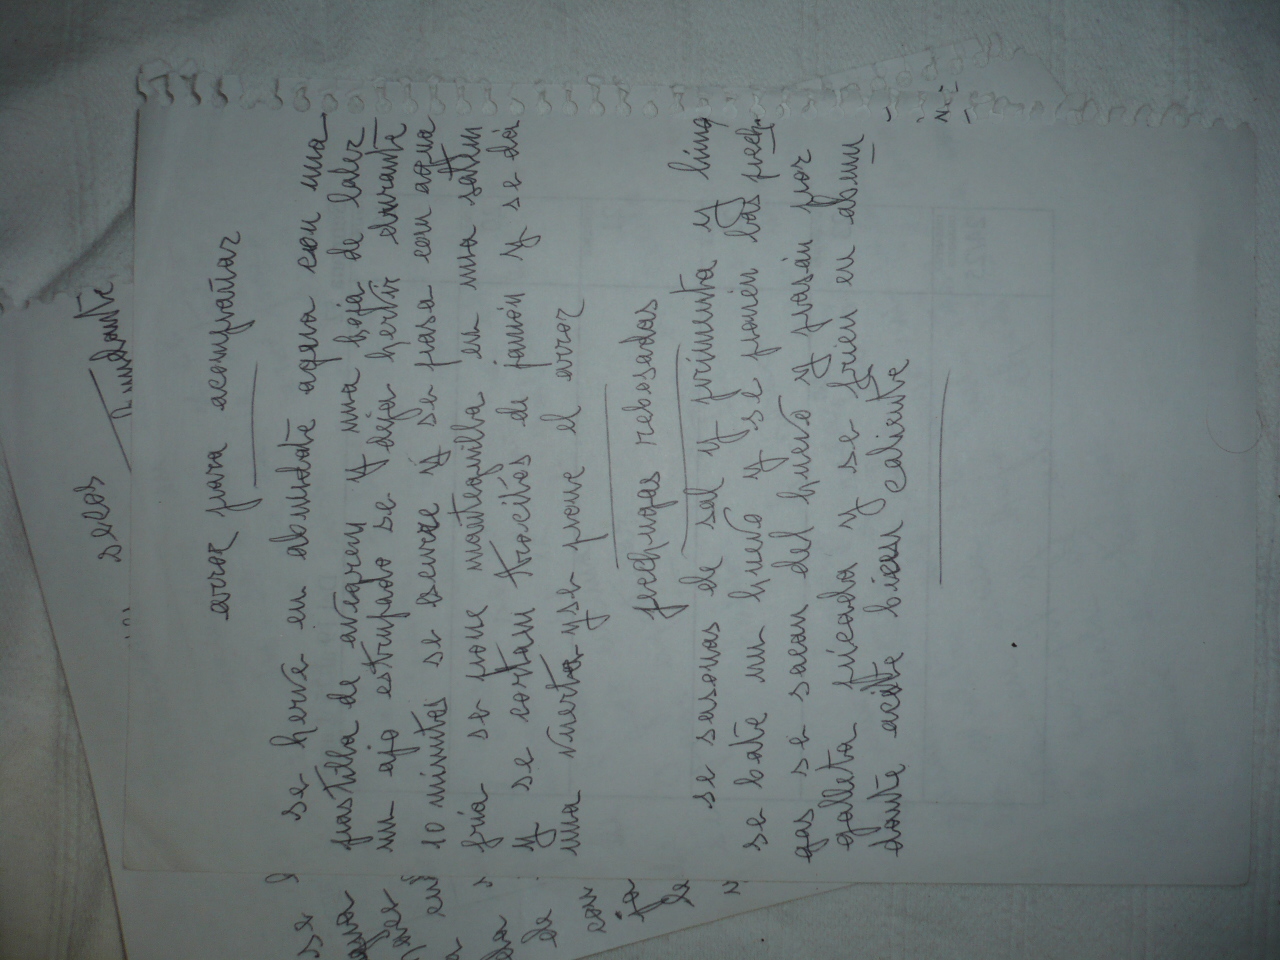 arroz para acompañar
se herve en abundate agua con una
pastilla de avegren y una hoja de laler
un ajo estrupado se y deja hervir durante
10 minutos se scurre y se pasa con agua
fria se pone mantequilla en una saten
y se cortan trocitos de jamón y se da
una vuerta y se pone el arroz
pechugas rebosadas
se sasonas de sal y primenta y limo
se bate un huevo y se ponen las pechu
gas se sacan del huevo y pasan por
galleta picada y se frien en abun
dante aceite bien caliente
secos
se
de
con